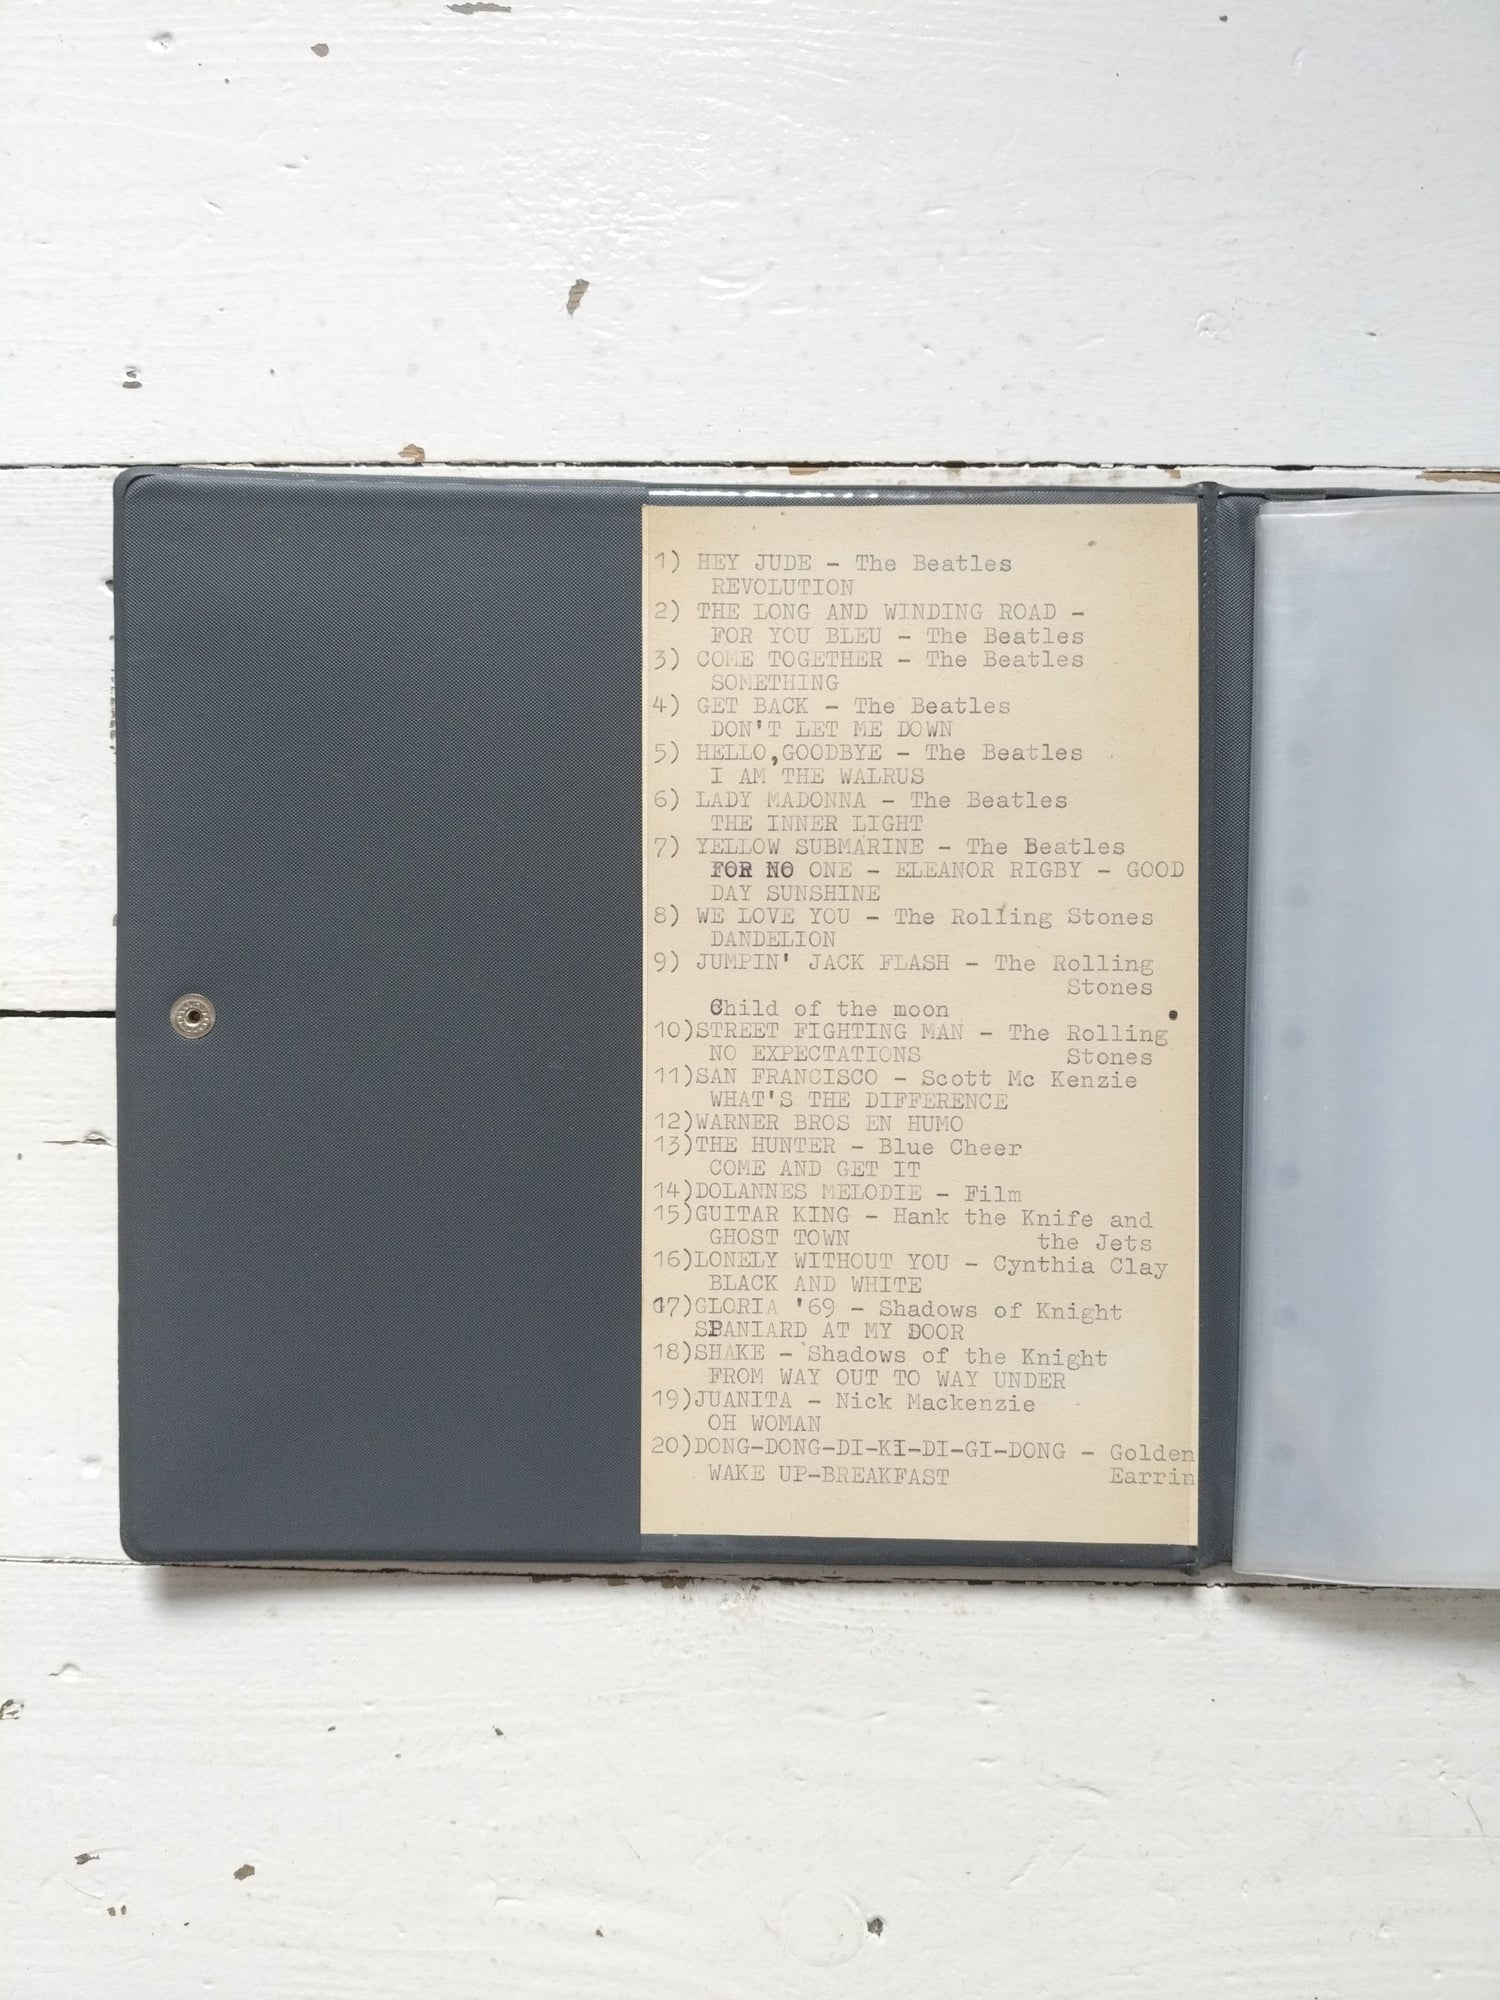 1) HEY JUDE - The Beatles
REVOLUTION
2) THE LONG AND WINDING ROAD -
FOR YOU BLEU - The Beatles
3) COME TOGETHER - The Beatles
SOMETHING
4) GET BACK - The Beatles
DON'T LET ME DOWN
5) HELLO,GOODBYE - The Beatles
I AM THE WALRUS
6) LADY MADONNA - The Beatles
THE INNER LIGHT
7) YELLOW SUBMARINE - The Beatles
FOR NO ONE - ELEANOR RIGBY - GOOD
DAY SUNSHINE
8) WE LOVE YOU - The Rolling Stones
DANDELION
9) JUMPIN' JACK FLASH - The Rolling
Stones
Child of the moon
10)STREET FIGHTING MAN - The Rolling
NO EXPECTATIONS Stones
11)SAN FRANCISCO - Scott Mc Kenzie
WHAT'S THE DIFFERENCE
12)WARNER BROS EN HUMO
13)THE HUNTER - Blue Cheer
COME AND GET IT
14)DOLANNES MELODIE - Film
15)GUITAR KING - Hank the Knife and
GHOST TOWN the Jets
16)LONELY WITHOUT YOU - Cynthia Clay
BLACK AND WHITE
17)GLORIA '69 - Shadows of Knight
SPANIARD AT MY DOOR
18)SHAKE - Shadows of the Knight
FROM WAY OUT TO WAY UNDER
19)JUANITA - Nick Mackenzie
OH WOMAN
20)DONG-DONG-DI-KI-DI-GI-DONG - Golden
WAKE UP-BREAKFAST Earrin